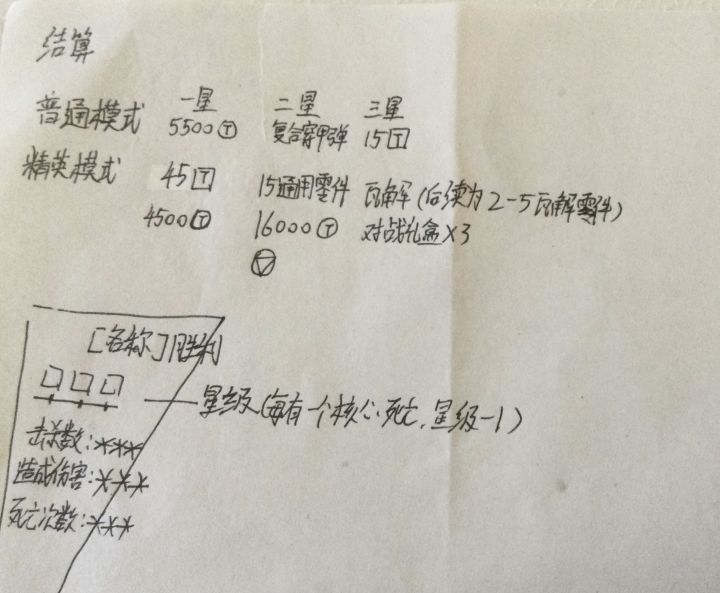 结算
一星 二星 三星
普通模式 5500Ⓣ 复合穿甲弹 15🅃
精英模式 45🅃 15通用零件 瓦解军(后续为2-5瓦解零件)
4500Ⓣ 16000Ⓣ 对战礼盒×3
[名称]胜利
星级(每有一个核心死亡,星级-1)
击杀数:***
造成伤害:***
死亡次数:***